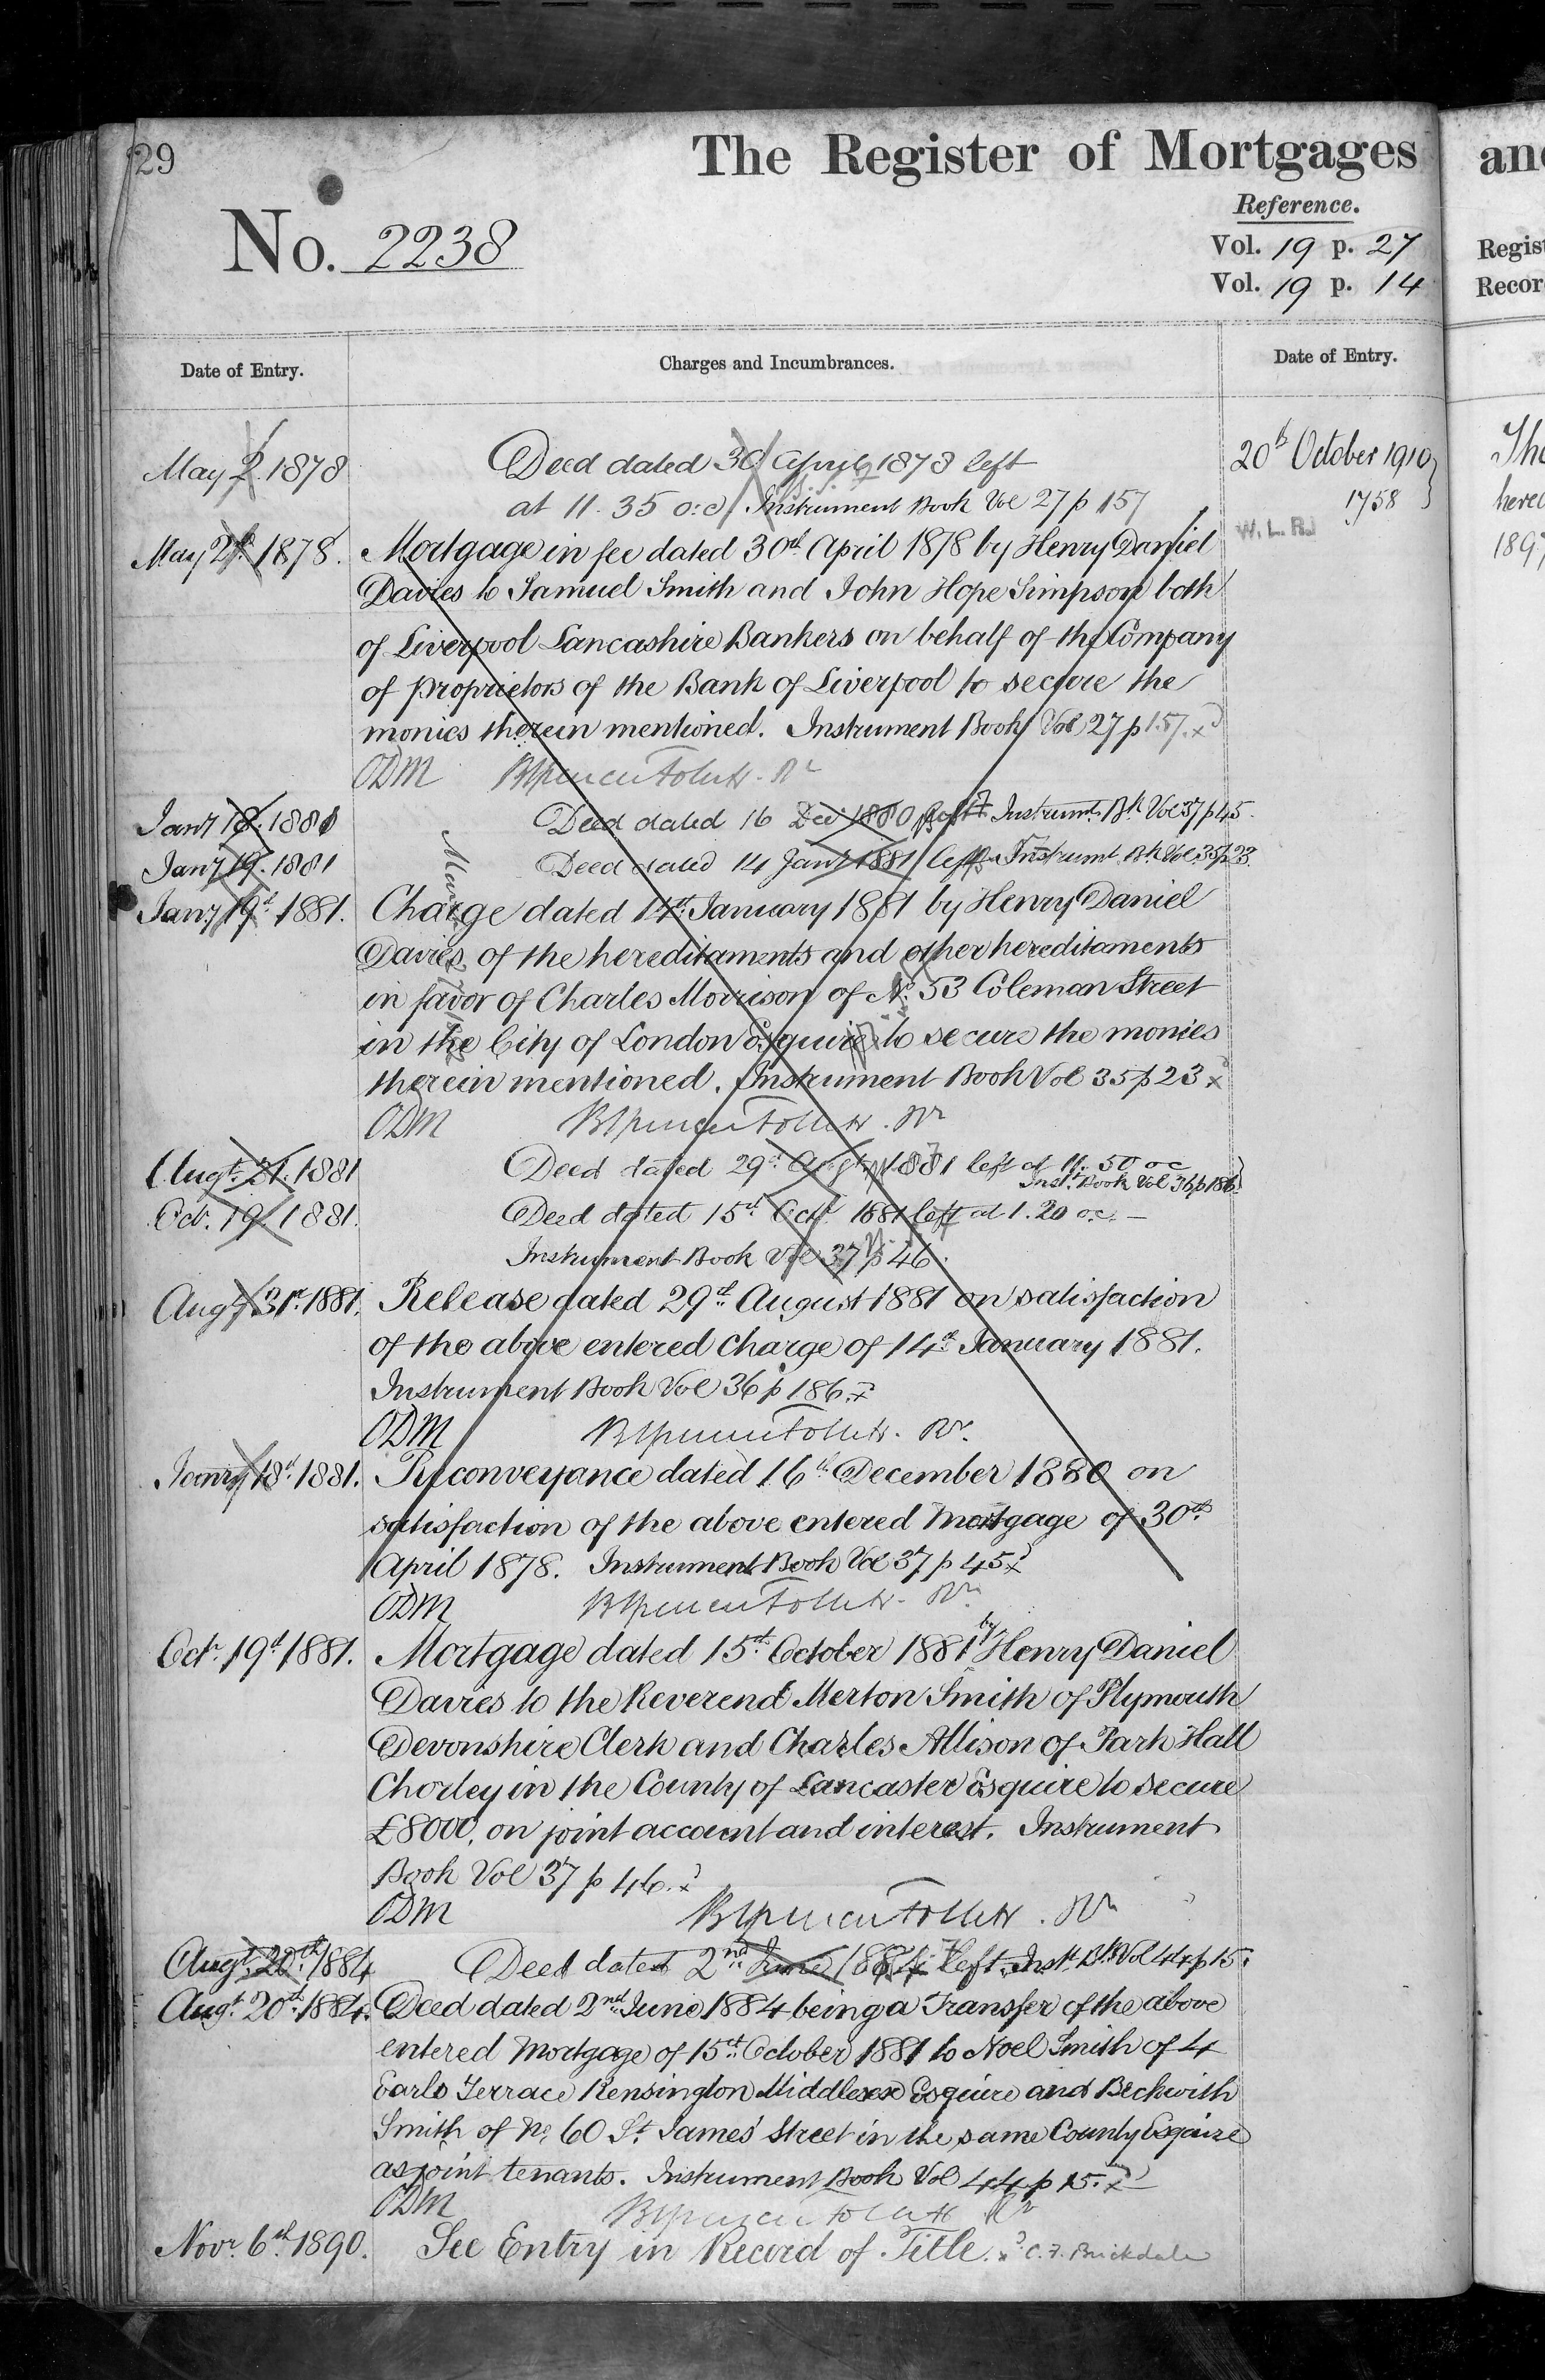 29
The Register of Mortgages
an
No. 2238
Reference.
Vol. 19 p. 27
Vol. 19 p. 14
Regist
Recor
Date of Entry.
Charges and Incumbrances.
Date of Entry.
May 2. 1878
Deed dated 30 April 1878 left
at 11.35 o.c. Instrument Book Vol 27 p 157
20th October 1910
1758
W. L. R.
The
here
189
May 2nd 1878.
Mortgage in fee dated 30th April 1878 by Henry Daniel
Davies to Samuel Smith and John Hope Simpson both
of Liverpool Lancashire Bankers on behalf of the Company
of proprietors of the Bank of Liverpool to secure the
monies therein mentioned. Instrument Book Vol 27 p 157. x
ODM
Jany 18. 1881
Deed dated 16 Decr 1880 left Instrumt. Bk Vol 37 p 45.
Jany 19. 1881
Deed dated 14 Jany 1881 left Instrumt. Bk Vol. 35 p 23.
Jany 19th 1881.
Charge dated 14th January 1881 by Henry Daniel
Davies of the hereditaments and other hereditaments
in favor of Charles Morrison of No. 53 Coleman Street
in the City of London Esquire to secure the monies
therein mentioned. Instrument Book Vol 35 p 23 x
ODM
Augt. 31. 1881
Deed dated 29th Augt. 1881 left at 11.50 oc
Inst. Book Vol 36 p 186.
Oct. 19. 1881.
Deed dated 15th Octr. 1881 left at 1.20 o.c. —
Instrument Book Vol 37 p 46.
Augt. 31st. 1881.
Release dated 29th August 1881 on satisfaction
of the above entered Charge of 14th January 1881.
Instrument Book Vol 36 p 186. x
ODM
Janry 18th 1881.
Reconveyance dated 16th December 1880 on
satisfaction of the above entered Mortgage of 30th
April 1878. Instrument Book Vol 37 p 45 x
ODM
Octr. 19th 1881.
Mortgage dated 15th October 1881 by Henry Daniel
Davies to the Reverend Merton Smith of Plymouth
Devonshire Clerk and Charles Allison of Park Hall
Chorley in the County of Lancaster Esquire to secure
£8000, on joint account and interest. Instrument
Book Vol 37 p 46. x
ODM
Augt. 20th. 1884
Deed dated 2nd June 1884 left. Inst. Bk Vol 44 p 15.
Augt. 20th 1884.
Deed dated 2nd June 1884 being a Transfer of the above
entered Mortgage of 15th October 1881 to Noel Smith of 4
Earls Terrace Kensington Middlesex Esquire and Beckwith
Smith of No. 60 St. James' Street in the same County Esquire
as joint tenants. Instrument Book Vol 44 p 15. x
ODM
Novr. 6th 1890.
See Entry in Record of Title. x C. F. Brickdale